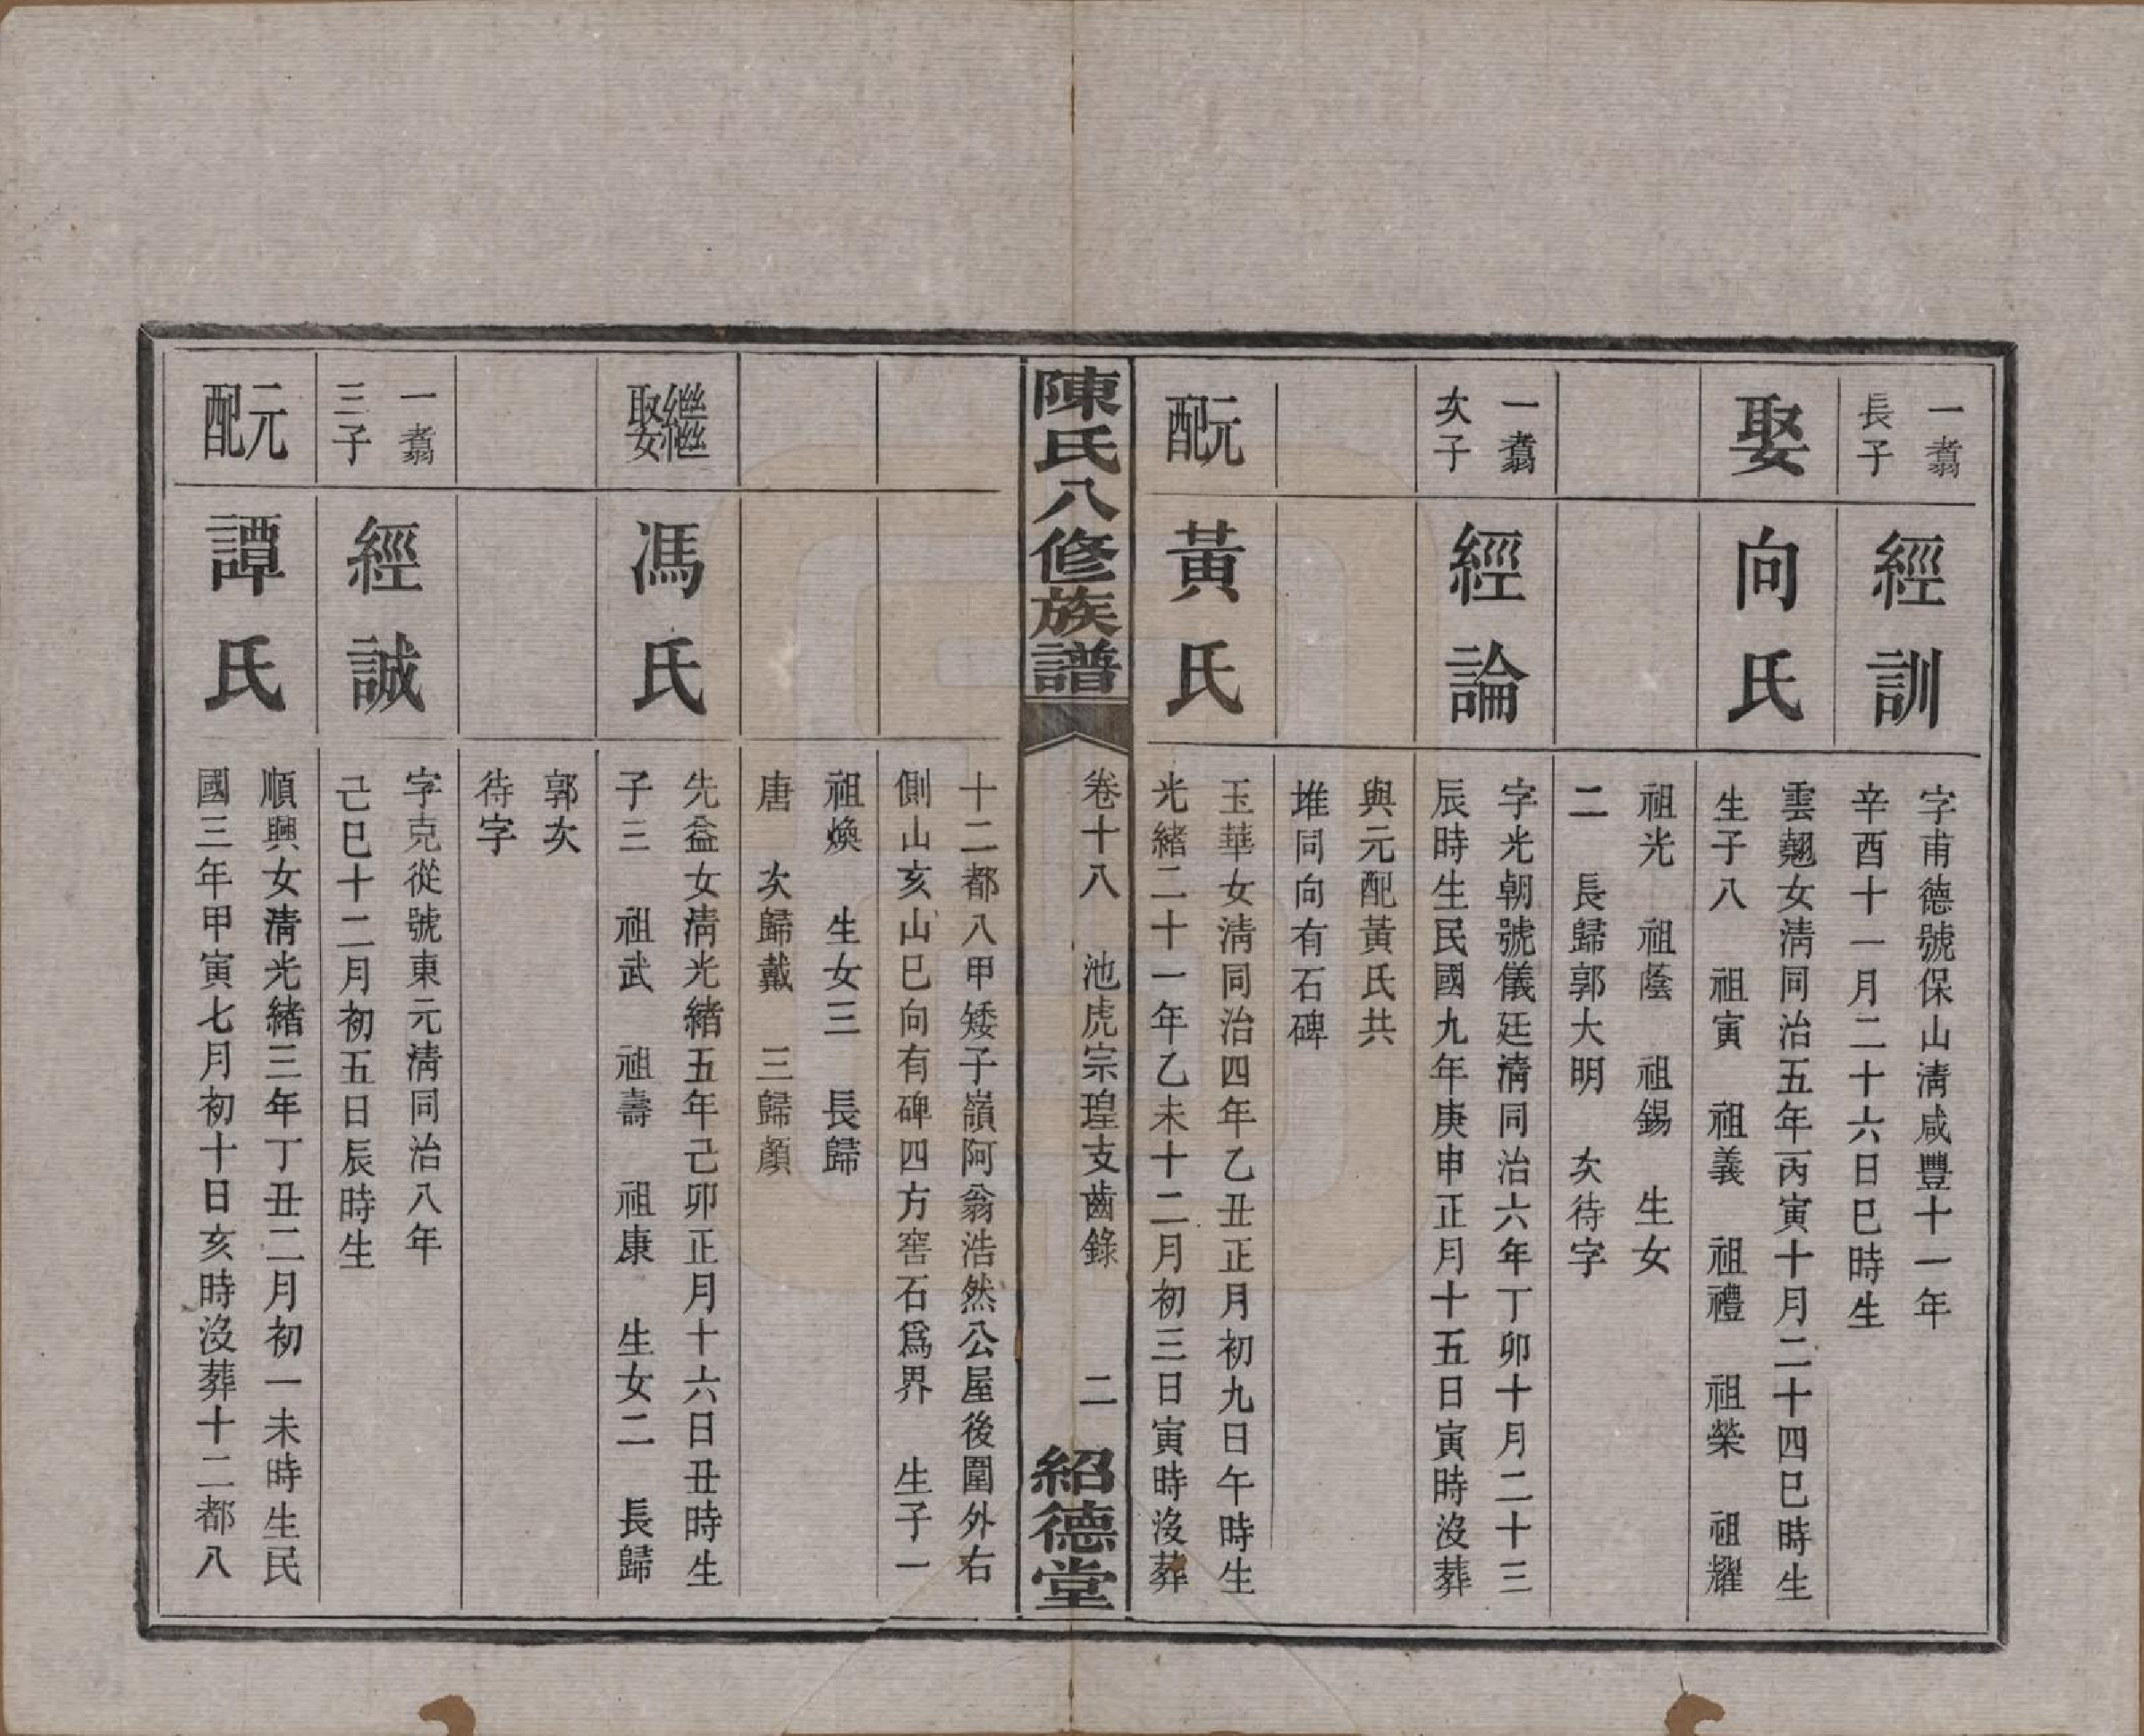 一翥
長子
經訓
字甫德號保山淸咸豐十一年
辛酉十一月二十六日巳時生
娶
向氏
雲翹女淸同治五年丙寅十月二十四巳時生
生子八 祖寅 祖義 祖禮 祖榮 祖耀
祖光 祖蔭 祖錫 生女
二 長歸郭大明 次待字
一翥
次子
經論
字光朝號儀廷淸同治六年丁卯十月二十三
辰時生民國九年庚申正月十五日寅時沒葬
與元配黃氏共
堆同向有石碑
元配
黃氏
玉華女淸同治四年乙丑正月初九日午時生
光緒二十一年乙未十二月初三日寅時沒葬
陳氏八修族譜
卷十八 池虎宗瑝支齒錄 二
紹德堂
十二都八甲矮子嶺阿翁浩然公屋後圍外右
側山亥山巳向有碑四方窖石爲界 生子一
祖煥 生女三 長歸
唐 次歸戴 三歸顏
繼娶
馮氏
先益女淸光緒五年己卯正月十六日丑時生
子三 祖武 祖壽 祖康 生女二 長歸
郭次
待字
一翥
三子
經誠
字克從號東元淸同治八年
己巳十二月初五日辰時生
元配
譚氏
順興女淸光緒三年丁丑二月初一未時生民
國三年甲寅七月初十日亥時沒葬十二都八